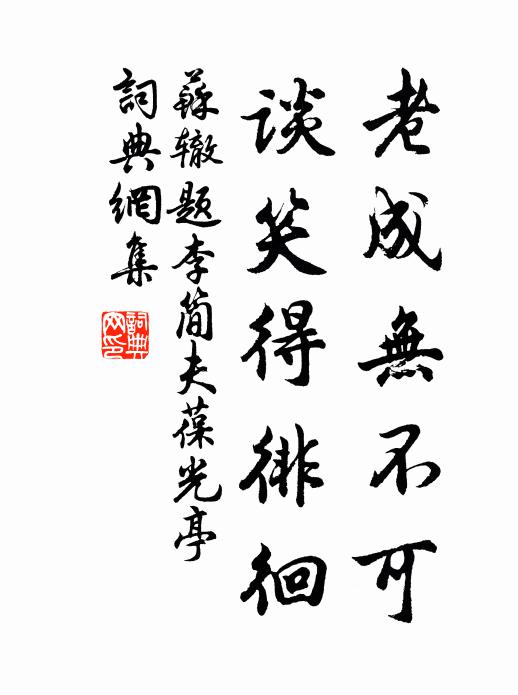 老成無不可
談笑得徘徊
蘇辙题李简夫葆光亭
詞典網集
詞典網印